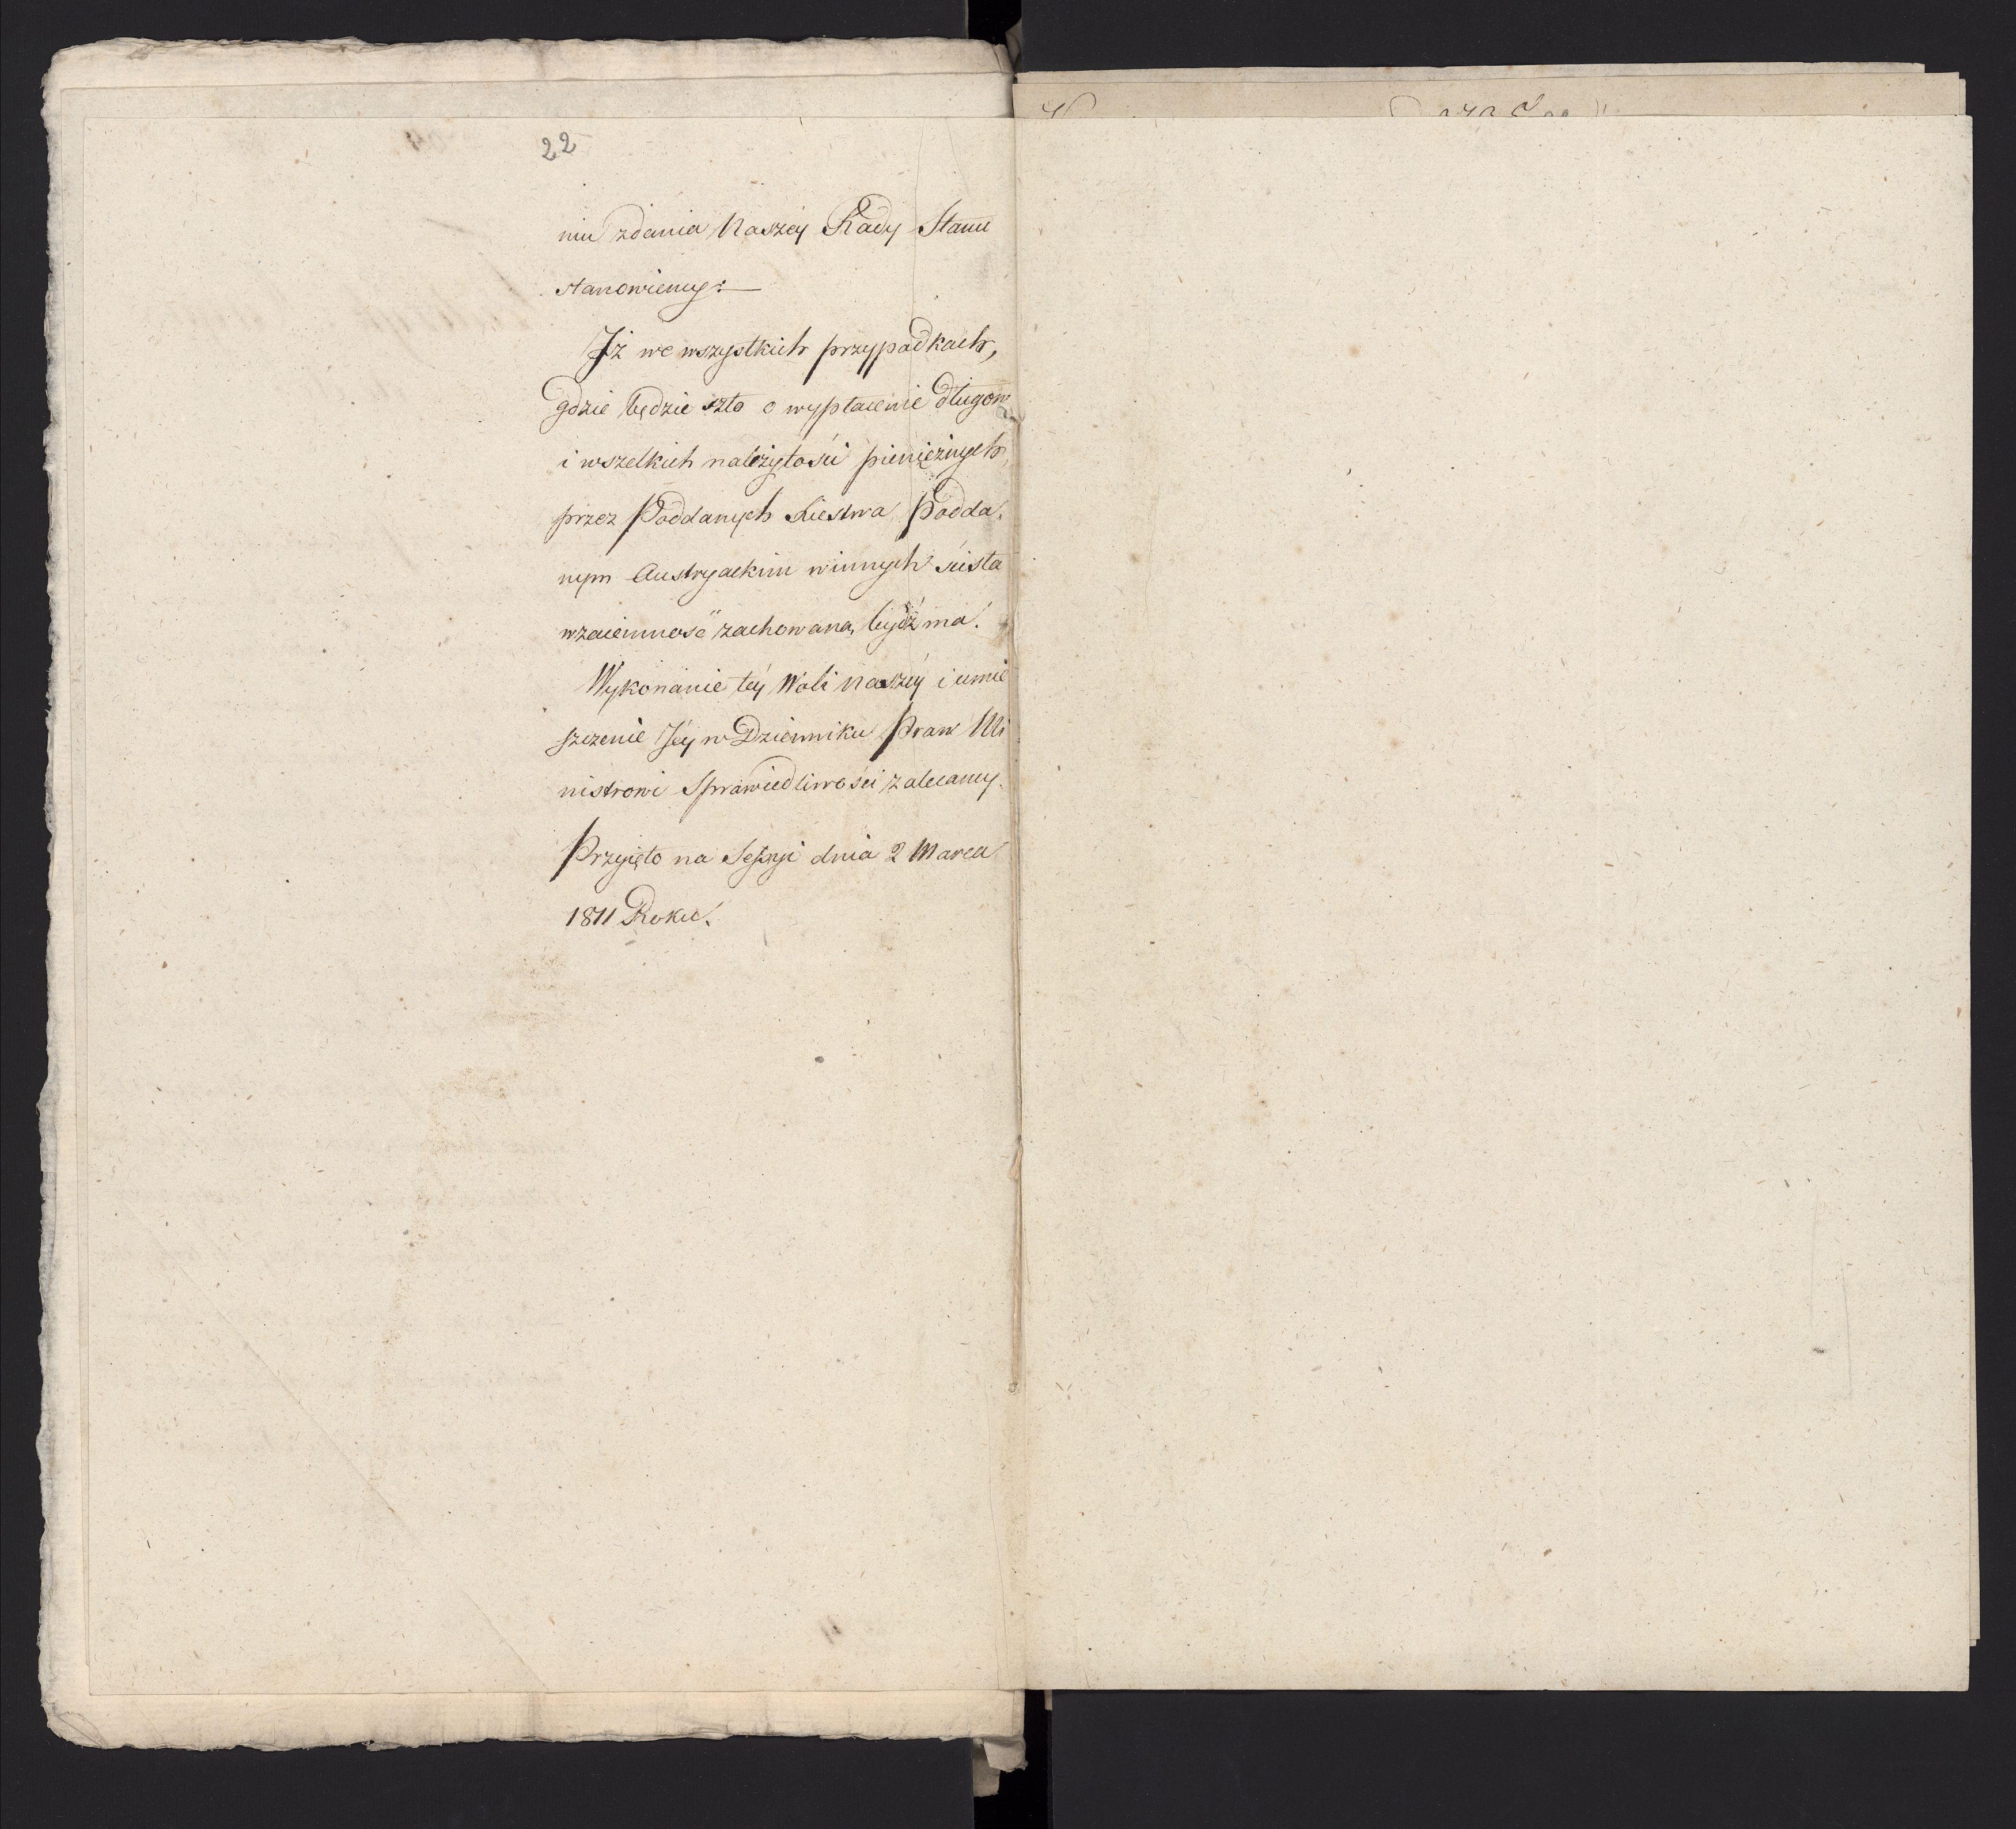 22
niu zdania Naszéy Rady Stanu
stanowiemy:
Iż we wszystkich przypadkach,
gdzie będzie szło o wypłacenie długów
i wszelkich należytości pieniężnych
przez Poddanych Xięstwa Podda.
nym Austryackim winnych ścisła
wzaiemność zachowaną bydź ma.
Wykonanie téy Woli Naszéy i umie
szczenie Jéy w Dzienniku Praw Mi
nistrowi Sprawiedliwości zalecamy.
Przyięto na Sessyi dnia 2 Marca
1811 Roku.